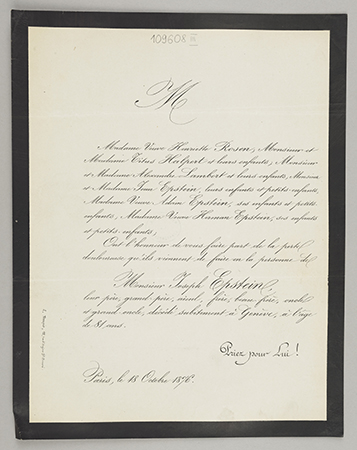 109608
M
Madame Veuve Henriette Rosen, Monsieur et
Madame Titus Halpert et leurs enfants, Monsieur
et Madame Alexandre Lambert et leurs enfants, Monsieur
et Madame Jean Epstein, leurs enfants et petits enfants,
Madame Veuve Adam Epstein, ses enfants et petits
enfants, Madame Veuve Herman Epstein, ses enfants
et petits enfants,
Ont l'honneur de vous faire part de la perte
douloureuse qu'ils viennent de faire en la personne de
Monsieur Joseph Epstein,
leur père, grand père, aïeul, frère, beau frère, oncle
et grand oncle, décédé subitement à Genève, à l'âge
de 81 ans.
Priez pour Lui!
Paris, le 18 Octobre 1876.